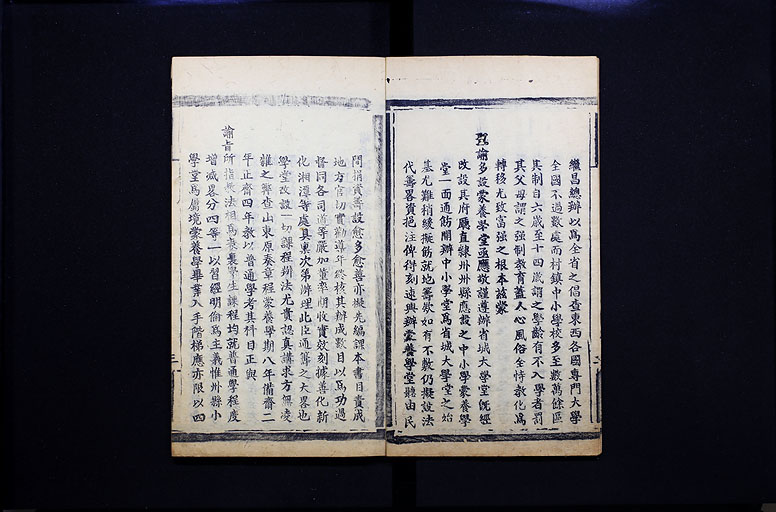 繼昌總辦以為全省之倡查東西各國專門大學
全國不過數處而村鎮中小學校多至數萬餘區
其制自六歲至十四歲謂之學齡有不入學者罰
其父母謂之強制教育蓋人心風俗全恃教化為
轉移尤致富強之根本茲蒙
聖諭多設蒙養學堂亟應敬謹遵辦省城大學堂旣經
改設其府廳直隸州州縣應設之中小學蒙養學
堂一面通飭開辦中小學堂為省城大學堂之始
基尤難稍緩擬飭就地籌欵如有不敷仍擬設法
代籌畧資挹注俾得刻速興辦蒙養學堂聽由民
間捐資籌設愈多愈善亦擬先編課本書目責成
地方官切實勸導年終核其辦成數目以為功過
督同各司道等嚴加董率期收實效刻據善化新
化湘潭等處具稟次第辦理此臣通籌之大畧也
學堂改設一切課程辦法尤貴認真講求方無凌
雜之弊查山東原奏章程蒙養學期八年備齋二
年正齋四年敎以普通學考其科目正與
諭旨所指敎法相為表裏學生課程均就普通學程度
增減畧分四等一以習經明倫為主義惟州縣小
學堂爲屬境蒙養學畢業入手階梯應亦限以四